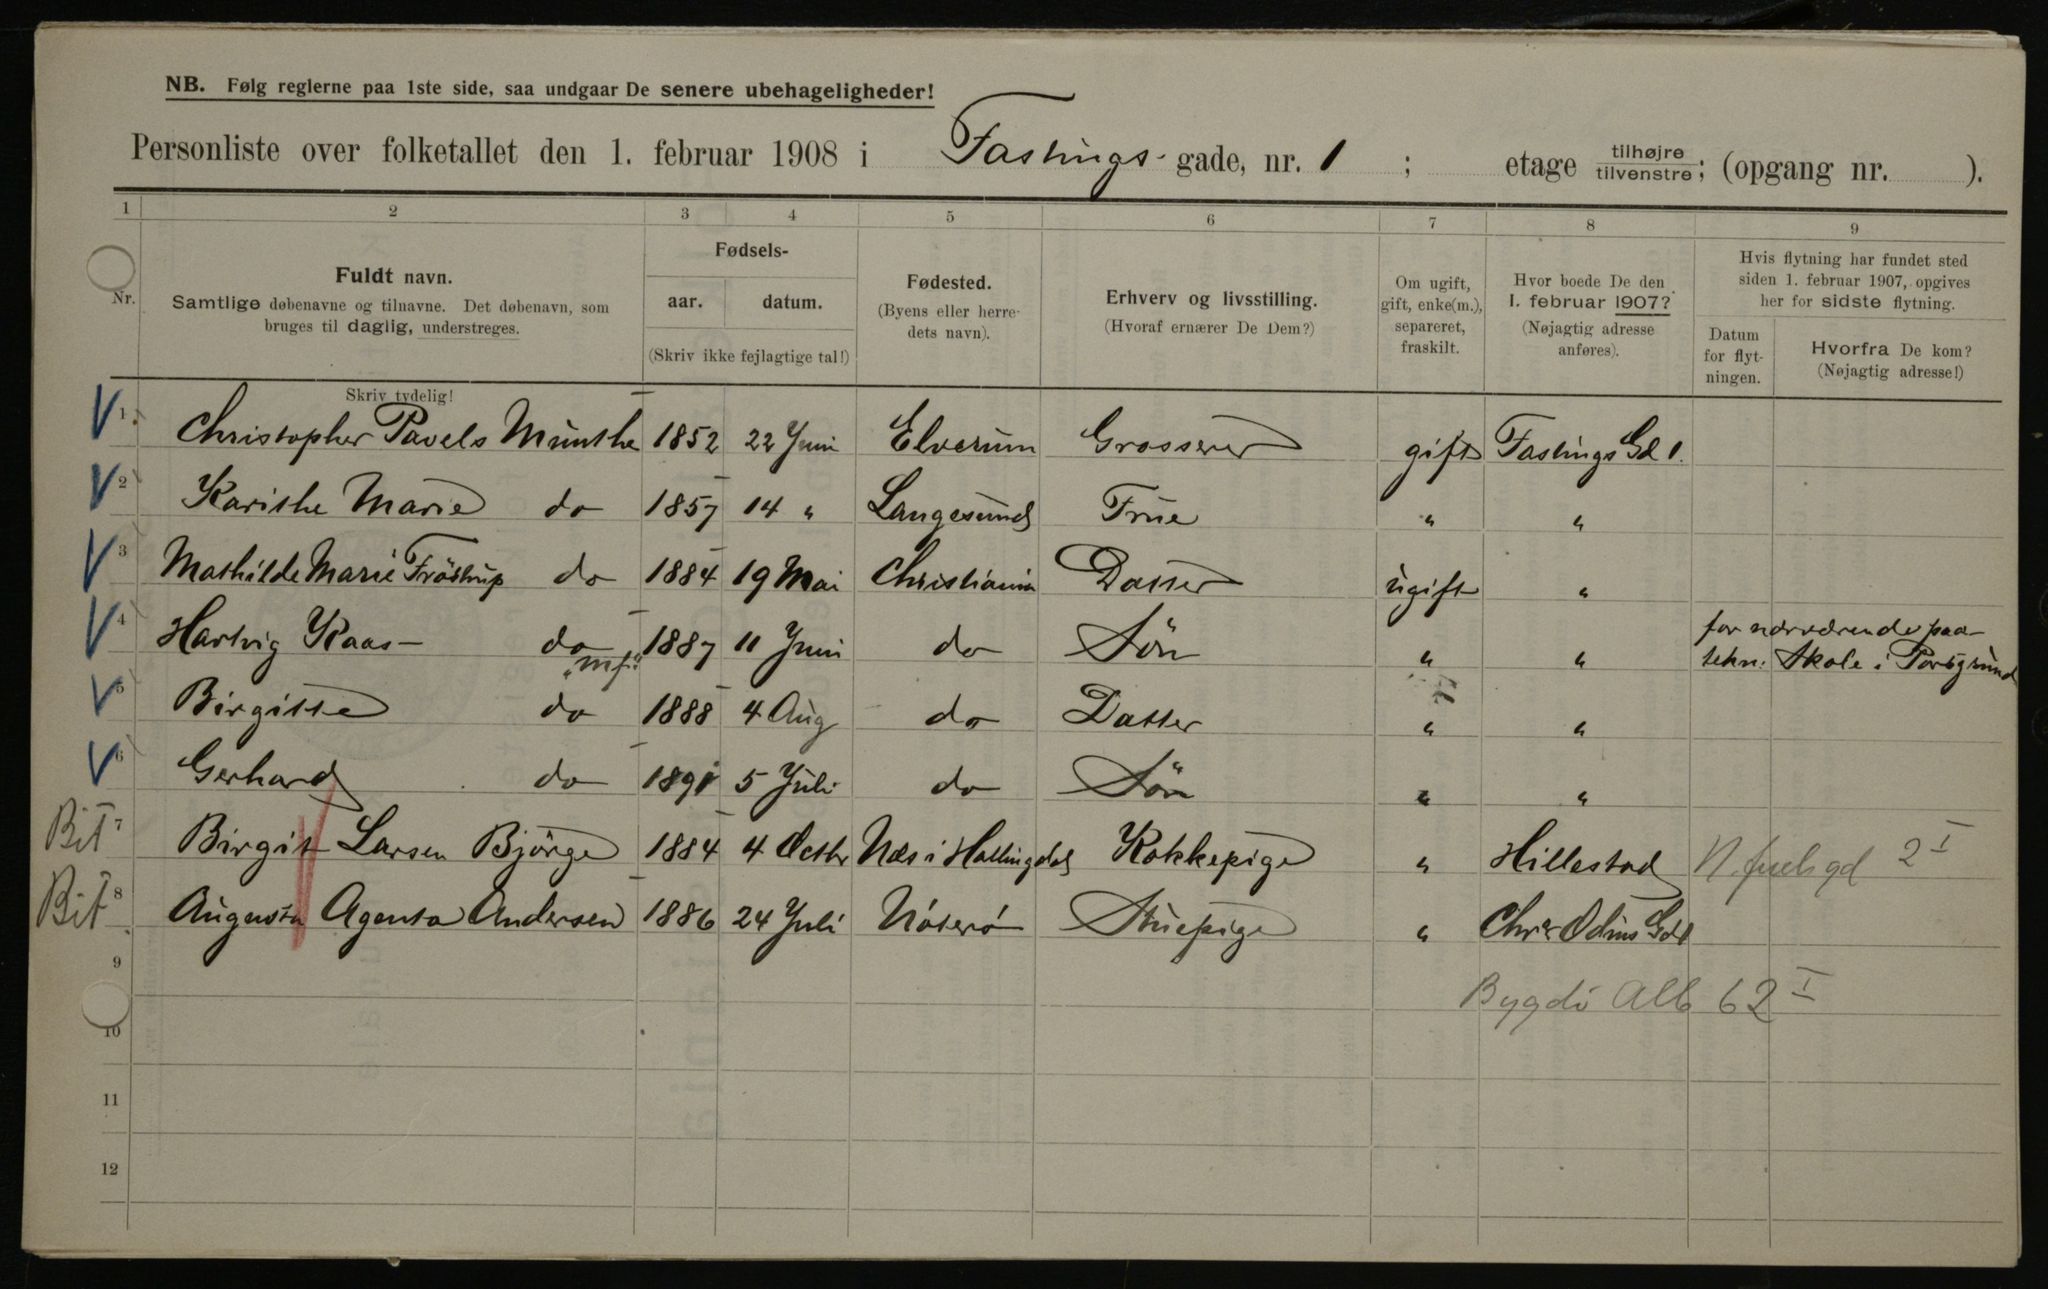 NB. Følg reglerne paa 1ste side, saa undgaar De senere ubehageligheder!
Personliste over folketallet den 1. februar 1908 i Fastings gade, nr. 1 ; etage tilhøjre tilvenstre; (opgang nr. ).
1 2 3 4 5 6 7 8 9
Nr.
Fuldt navn.
Samtlige døbenavne og tilnavne. Det døbenavn, som
bruges til daglig, understreges.
Fødsels-
aar. datum.
(Skriv ikke fejlagtige tal!)
Fødested.
(Byens eller herre-
dets navn).
Erhverv og livsstilling.
(Hvoraf ernærer De Dem?)
Om ugift,
gift, enke(m.),
separeret,
fraskilt.
Hvor boede De den
1. februar 1907?
(Nøjagtig adresse
anføres).
Hvis flytning har fundet sted
siden 1. februar 1907, opgives
her for sidste flytning.
Datum
for flyt-
ningen.
Hvorfra De kom?
(Nøjagtig adresse!)
Skriv tydelig!
1 Christopher Pavels Munthe 1852 22 Juni Elverum Grosserer gift Fastings Gd 1.
2 Karithe Marie do 1857 14 " Langesund Frue " "
3 Mathilde Marie Fröstrup do 1884 19 Mai Christiania Datter ugift "
4 Hartvig Kaas do 1887 11 Juni do Sön " " for nærværende paa
tekn: Skole i Porsgrund
"mf."
5 Birgitte do 1888 4 Aug do Datter " "
6 Gerhard do 1891 5 Juli do Sön " "
Bit 7 Birgit Larsen Björge 1884 4 Octbr Næs i Hallingdal Kokkepige " Hillestad gd 2 I
Bit 8 Augusta Agenta Andersen 1886 24 Juli Nöterö Stuepige " Chr Odins Gd 1
9
Bygdö Alle 62 I
10
11
12